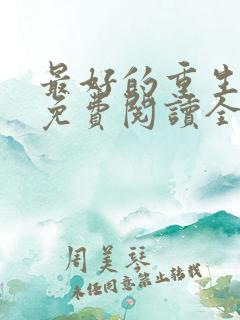 最好的重生
免費閱讀全
周美琴
未经同意禁止转载